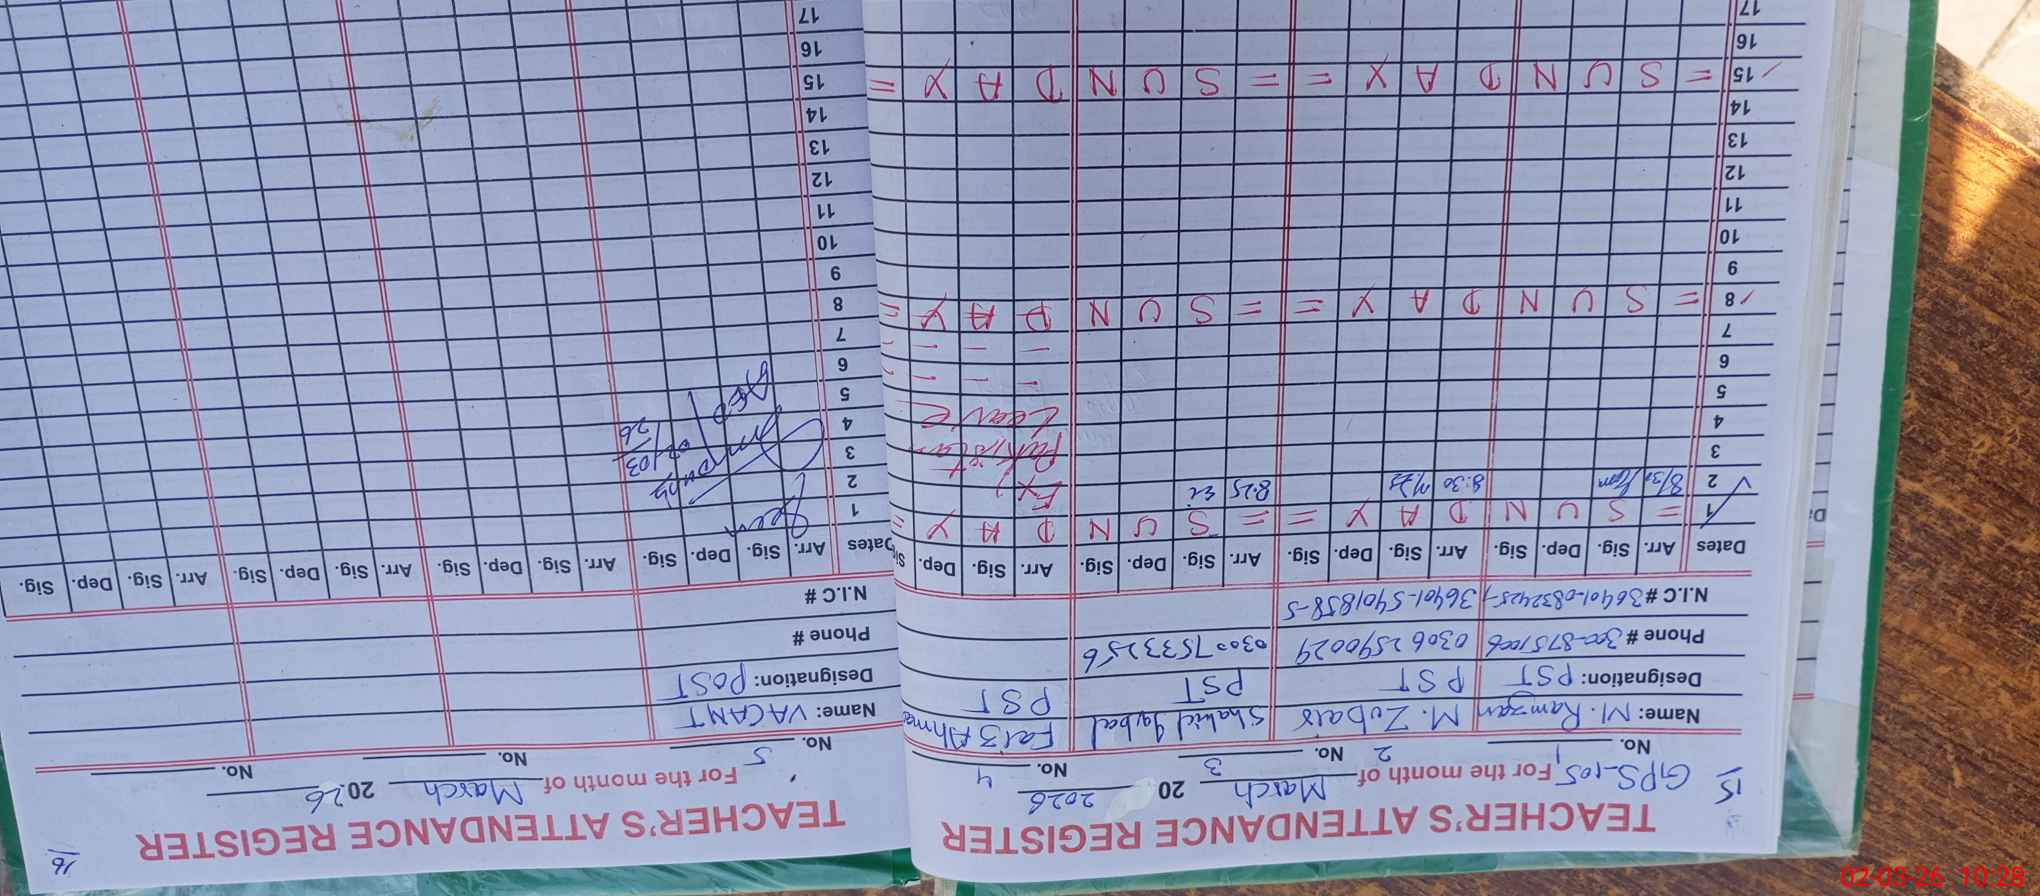 15
TEACHER'S ATTENDANCE REGISTER
GPS-105 For the month of March 2026
No. 1 No. 2 No. 3 No. 4
Name: M. Ramzan M. Zubair Shahid Iqbal Faiz Ahme
Designation: PST PST PST PST
Phone # 300-8751006 0306 2590029 03007533256
N.I.C # 36401-0832425-1 36401-5401858-5
Dates Arr. Sig. Dep. Sig. Arr. Sig. Dep. Sig. Arr. Sig. Dep. Sig. Arr. Sig. Dep. Sig.
1 = S U N D A Y = = S U N D A Y =
2 8/30 8:30 8:25 Ex
3 Pakistan
4 Leave
5
6 - - -
7 - - -
8 = S U N D A Y = = S U N D A Y =
9
10
11
12
13
14
15 = S U N D A Y = = S U N D A Y =
16
17
16
TEACHER'S ATTENDANCE REGISTER
For the month of March 2026
No. 5 No. No. No.
Name: VACANT
Designation: POST
Phone #
N.I.C #
Dates Arr. Sig. Dep. Sig. Arr. Sig. Dep. Sig. Arr. Sig. Dep. Sig. Arr. Sig. Dep. Sig.
1 Seen
2
3 02/03/26
4
5
6
7
8
9
10
11
12
13
14
15
16
17
02-03-26 10:28